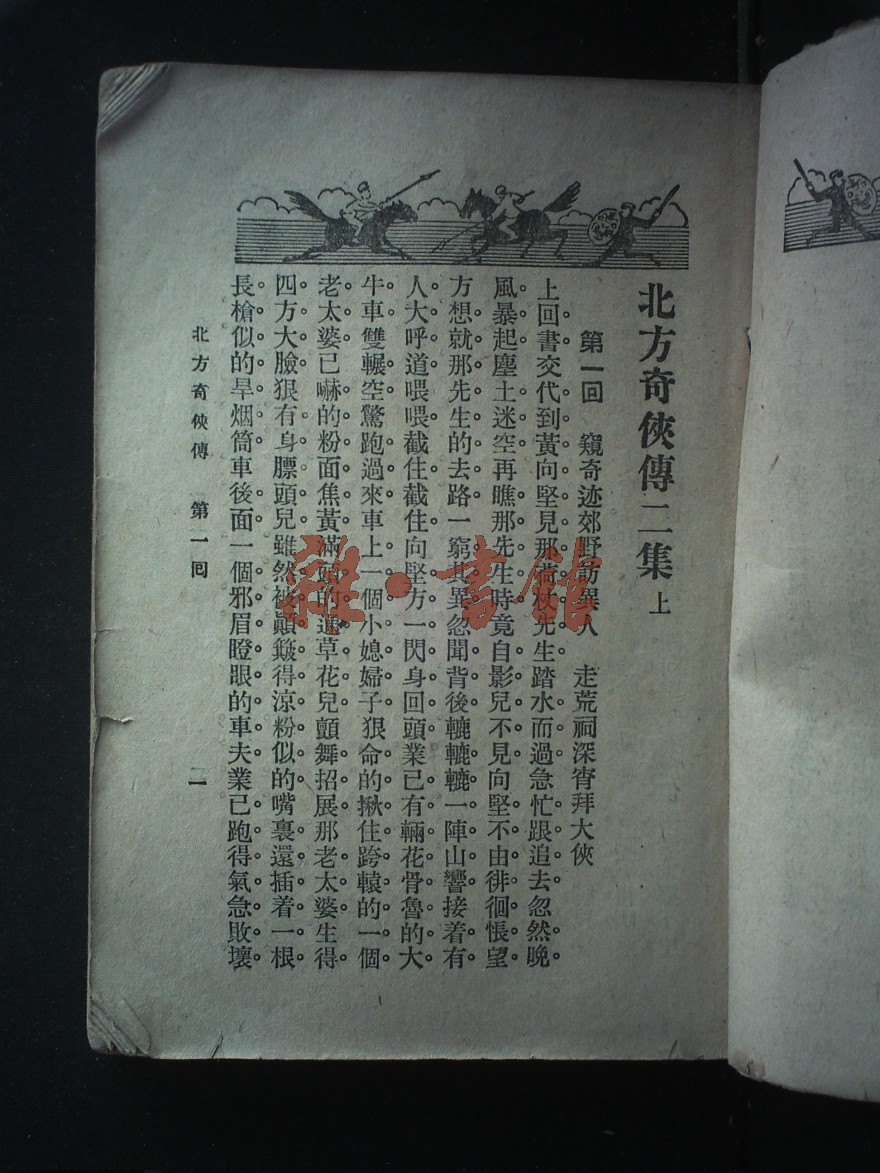 北方奇俠傳二集 上
第一回 窺奇迹郊野訪異人 走荒祠深宵拜大俠
上回書交代到黃向堅見那荷杖先生踏水而過急忙跟追去忽然晚
風暴起塵土迷空再瞧那先生時竟自影兒不見向堅不由徘徊悵望
方想就那先生的去路一窮其異忽聞背後轆轆轆一陣山響接着有
人大呼道喂喂截住截住向堅方一閃身回頭業已有輛花骨魯的大
牛車雙輾空驚跑過來車上一個小媳婦子狠命的揪住跨轅的一個
老太婆已嚇的粉面焦黃滿頭的通草花兒顫舞招展那老太婆生得
四方大臉狠有身膘頭兒雖然被顛簸得涼粉似的嘴裏還插着一根
長槍似的旱烟筒車後面一個邪眉瞪眼的車夫業已跑得氣急敗壞
北方奇俠傳 第一回
一
雜·書館